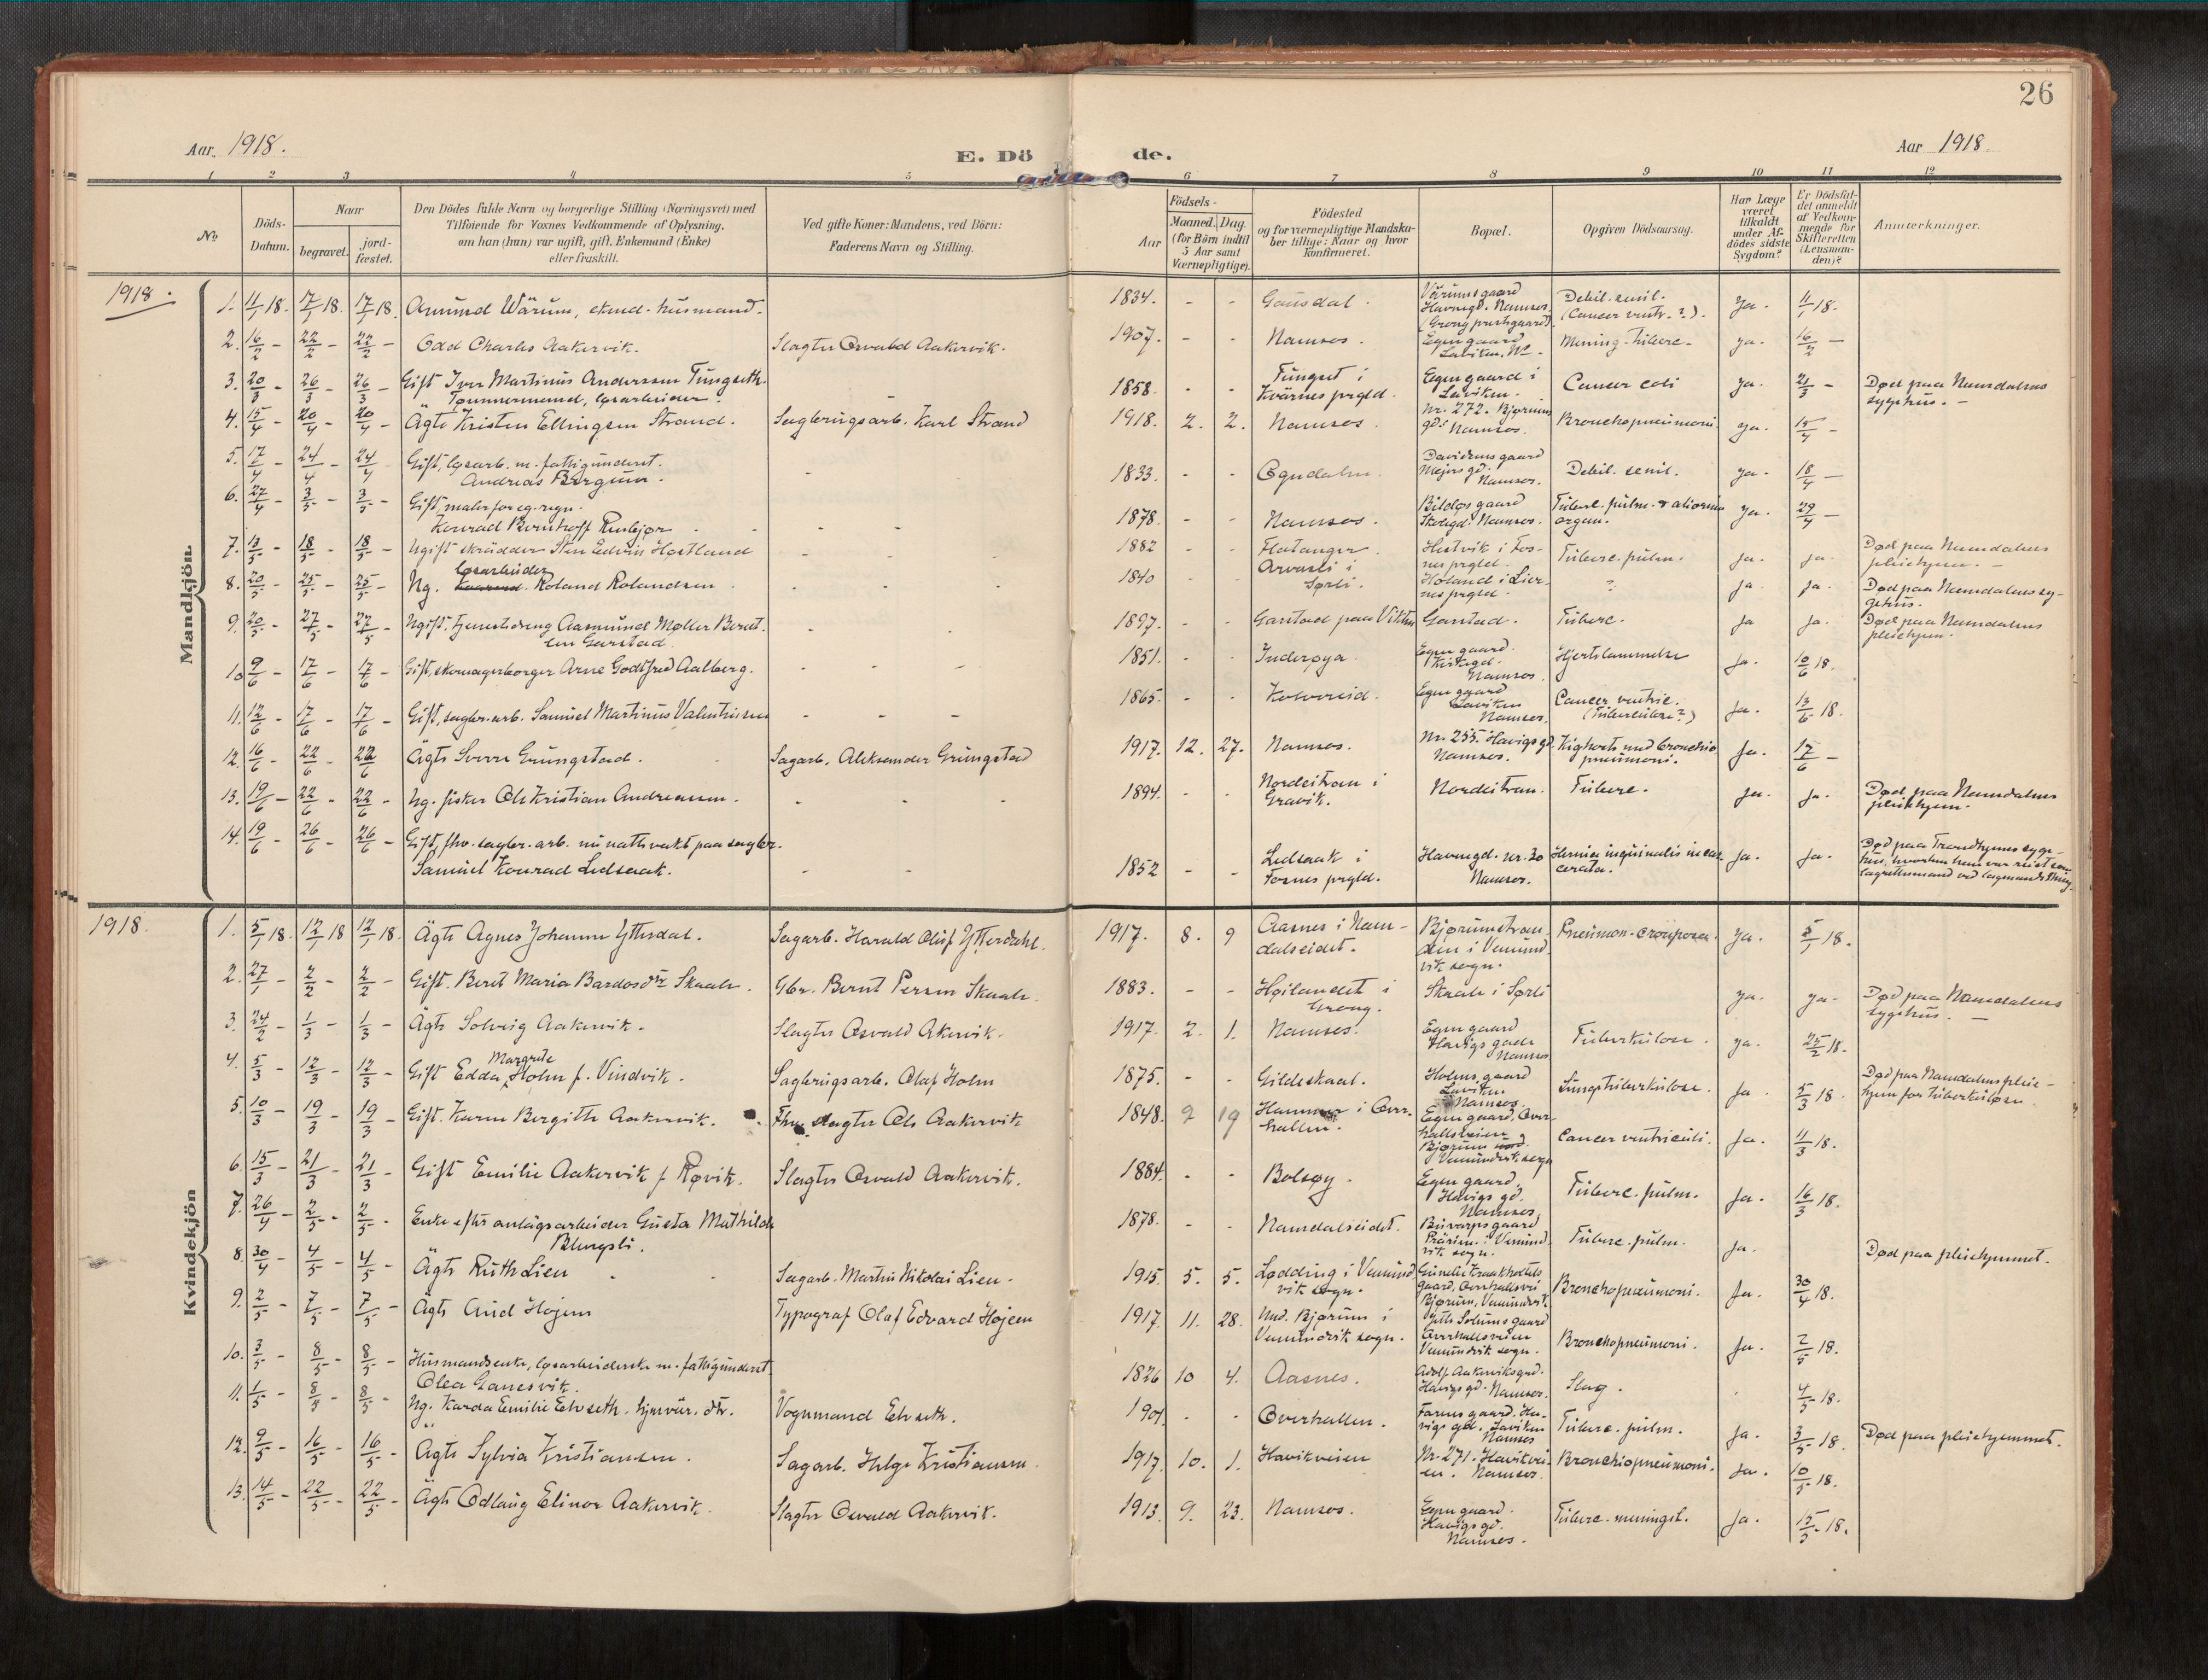 26
Aar 1918.
E. Dö
de.
Aar 1918.
1 2 3 4 5 6 7 8 9 10 11 12
No.
Döds-Datum.
Naar
begravet.
jord-fæstet.
Den Dödes fulde Navn og borgerlige Stilling (Næringsvei) med
Tilföiende for Voxnes Vedkommende af Oplysning,
om han (hun) var ugift, gift, Enkemand (Enke)
eller fraskilt.
Ved gifte Koner: Mandens, ved Börn:
Faderens Navn og Stilling.
Födsels-
Aar
Maaned. Dag.
(for Börn indtil
5 Aar samt
Værnepligtige).
Födested
og for værnepligtige Mandska-
ber tillige: Naar og hvor
konfirmeret.
Bopæl.
Opgiven Dödsaarsag.
Har Læge
været
tilkaldt
under Af-
dödes sidste
Sygdom?
Er Dödsfal-
det anmeldt
af Vedkom-
mende for
Skifteretten
(Lensman-
den)?
Anmærkninger.
Mandkjön
1918.
1. 11/1 18. 17/1 18. 17/1 18. Amund Wärum, husmand. 1834. - - Gausdal. Värumsgaard Havnegd. Namsos. (Grong prestgaard). Debil. senil. (Cancer ventr. ?). Ja. 11/1 18.
2. 16/2 - 22/2 - 22/2 - Odd Charles Aakervik. Slagter Osvald Aakervik. 1907. - - Namsos. Egen gaard Laviken, Ns. Mening. Tuberc. ja. 16/2 -
3. 20/3 - 26/3 - 26/3 - Gift Iver Martinus Anderssen Tungseth. Tømmermand, løsarbeider. 1858. - - Tunget i Kvärnes prgld. Egen gaard i Laviken. Cancer coli ja. 21/3 - Død paa Namdalens sygehus. -
4. 15/4 - 20/4 - 20/4 - Ägte Kristen Ellingsen Strand. Sagbrugsarb. Karl Strand 1918. 2. 2. Namsos. Nr. 272. Bjørums gd. Namsos. Bronchopneumoni. ja. 15/4 -
5. 17/4 - 24/4 - 24/4 - Gift, løsarb. m. fattigunderst. Andreas Bergum. - 1833. - - Ogndalen. Davidsens gaard Mejers gd. Namsos. Debil. senil. ja. 18/4 -
6. 27/4 - 3/5 - 3/5 - Gift, maler for eg. regn. Konrad Bernhoff Rusbjør - - 1878. - - Namsos. Bildøs gaard Skolegd. Namsos. Tuberc. pulm. & aliorum organ. ja. 29/4 -
7. 13/5 - 18/5 - 18/5 - Ugift skrädder Sten Edvin Hestland 1882 - - Flatanger. Hestvik i Fosnes prgld. Tuberc. pulm. ja. ja. Død paa Namdalens pleiehjem. -
8. 20/5 - 25/5 - 25/5 - Ug. løsarbeider Roland Rolandsen. 1840 - - Arvasli i Sørli. Holand i Liernes prgld. ? ja ja. Død paa Namdalens sygehus.
9. 20/5 - 27/5 - 27/5 - Ugift. tjenestedreng Aasmund Møller Berntsen Garstad. 1897. - - Garstad paa Vikten Garstad. Tuberc. Ja ja. Død paa Namdalens pleiehjem.
10 9/6 - 17/6 - 17/6 - Gift, skomagerborger Arne Godtfred Aalberg. 1851. - - Inderøya. Egen gaard. Kirkegd. Namsos. Hjertelammelse Ja. 10/6 18.
11. 12/6 - 17/6 - 17/6 - Gift, sagbr. arb. Samuel Martinus Valentinsen - - - 1865. - - Kolvereid. Egen gaard Laviken Namsos. Cancer ventric. (Tuberculose?) Ja. 13/6 18.
12. 16/6 - 22/6 - 22/6 - Ägte Sverre Grungstad. Sagarb. Aleksander Grungstad 1917. 12. 27. Namsos. Nr. 255. Havigsgd. Namsos. Kighoste med bronchiopneumoni. Ja. 17/6 -
13. 19/6 - 22/6 - 22/6 - Ug. fisker Ole Kristian Andreassen. - - - 1894. - - Nordeitran i Gravik. Nordeitran. Tuberc. Ja. Ja. Død paa Namdalens pleiehjem.
14. 19/6 - 26/6 - 26/6 - Gift, fhv. sagbr. arb. nu nattevakt paa sagbr. Samuel Konrad Ledsaak. - - 1852 - - Ledsaak i Fosnes prgld. Havnegd. nr. 30 Namsos. Hernia inguinalis incarcerata. Ja. Ja. Død paa Trondhjems sygehus, hvorhen han var reist som lagrettemand ved lagmandsthing.
Kvindekjön
1918.
1. 5/1 18. 12/1 18 12/1 18. Ägte Agnes Johanne Ytterdal. Sagarb. Harald Oluf Ytterdahl. 1917. 8. 9 Aasnes i Namdalseidet. Bjørumstranden i Vemundvik sogn. Pneumon. crouposa. Ja. 5/1 18.
2. 27/1 - 2/2 - 2/2 - Gift. Beret Maria Bardosdtr Skaale. Gbr. Bernt Persen Skaale. 1883. - - Høilandet i Grong. Skaale i Sørli ja. ja. Død paa Namdalens sygehus. -
3. 24/2 - 1/3 - 1/3 - Ägte Solveig Aakervik. Slagter Osvald Akervik. 1917. 2. 1. Namsos. Egen gaard Havigs gade Namsos Tuberkulose. ja. 25/2 18.
4. 5/3 - 12/3 - 12/3 - Gift Edda Margrete Holm f. Vindvik. Sagbrugsarb. Olaf Holm 1875. - - Gildeskaal. Holms gaard Laviken. Namsos. Lungetuberkulose. Ja. 5/3 18. Død paa Namdalens pleiehjem for tuberkuløse.
5. 10/3 - 19/3 - 19/3 - Gift. Karen Bergitte Aakervik. Fhv. slagter Ole Aakervik 1848. 2 19 Hammer i Overhallen. Egen gaard, Overhallsveien Bjørum Vemundvik sogn Cancer ventriculi. Ja. 11/3 18.
6. 15/3 - 21/3 - 21/3 - Gift Emilie Aakervik f. Røvik. Slagter Osvald Aakervik. 1884. - - Bolsøy. Egen gaard, Havigs gd. Namsos. Tuberc. pulm. Ja. 16/3 18.
7. 26/4 - 2/5 - 2/5 - Enke efter anlägsarbeider Gusta Mathilde Blengsli. 1878. - - Namdalseidet. Buvarps gaard Prärien i Vemundvik sogn. Tuberc. pulm. Ja. Død paa pleiehjemmet.
8. 30/4 - 4/5 - 4/5 - Ägte Ruth Lien Sagarb. Martin Nikolai Lien. 1915. 5. 5. Lødding i Vemundvik sogn. gaard, Overhallsvei Bjørum, Vemundvik. Bronchopneumoni. Ja. 30/4 18.
9. 2/5 - 7/5 - 7/5 - Ägte Aud Højem Typograf Olaf Edvard Højem 1917. 11. 28. Ned. Bjørum i Vemundvik sogn. Solumsgaard Overhallsveien Vemundvik sogn. Bronchopneumoni. Ja. 2/5 18.
10. 3/5 - 8/5 - 8/5 - Husmandsenke, løsarbeiderske m. fattigunderst. Olea Ganesvik. 1826 10 4. Aasnes. Adolf Aakerviks gd. Havigs gd. Namsos. Slag. 4/5 18.
11. 1/5 - 8/5 - 8/5 - Ug. Karda Emilie Elvseth. hjemvär. dtr. Vognmand Elvseth. 1901. - - Overhallen. Havigs gd. Laviken Namsos Tuberc. pulm. Ja. 3/5 18. Død paa pleiehjemmet.
12. 9/5 - 16/5 - 16/5 - Ägte Sylvia Kristiansen. Sagarb. Helge Kristiansen. 1917. 10. 1. Havikveien Nr. 271. Havikveien. Namsos. Bronchiopneumoni. Ja. 10/5 18.
13. 14/5 - 22/5 - 22/5 - Ägte Odlaug Elinor Aakervik. Slagter Osvald Aakervik. 1913. 9. 23. Namsos. Egen gaard. Havigs gd. Namsos. Tuberc. meningit. Ja. 15/5 18.